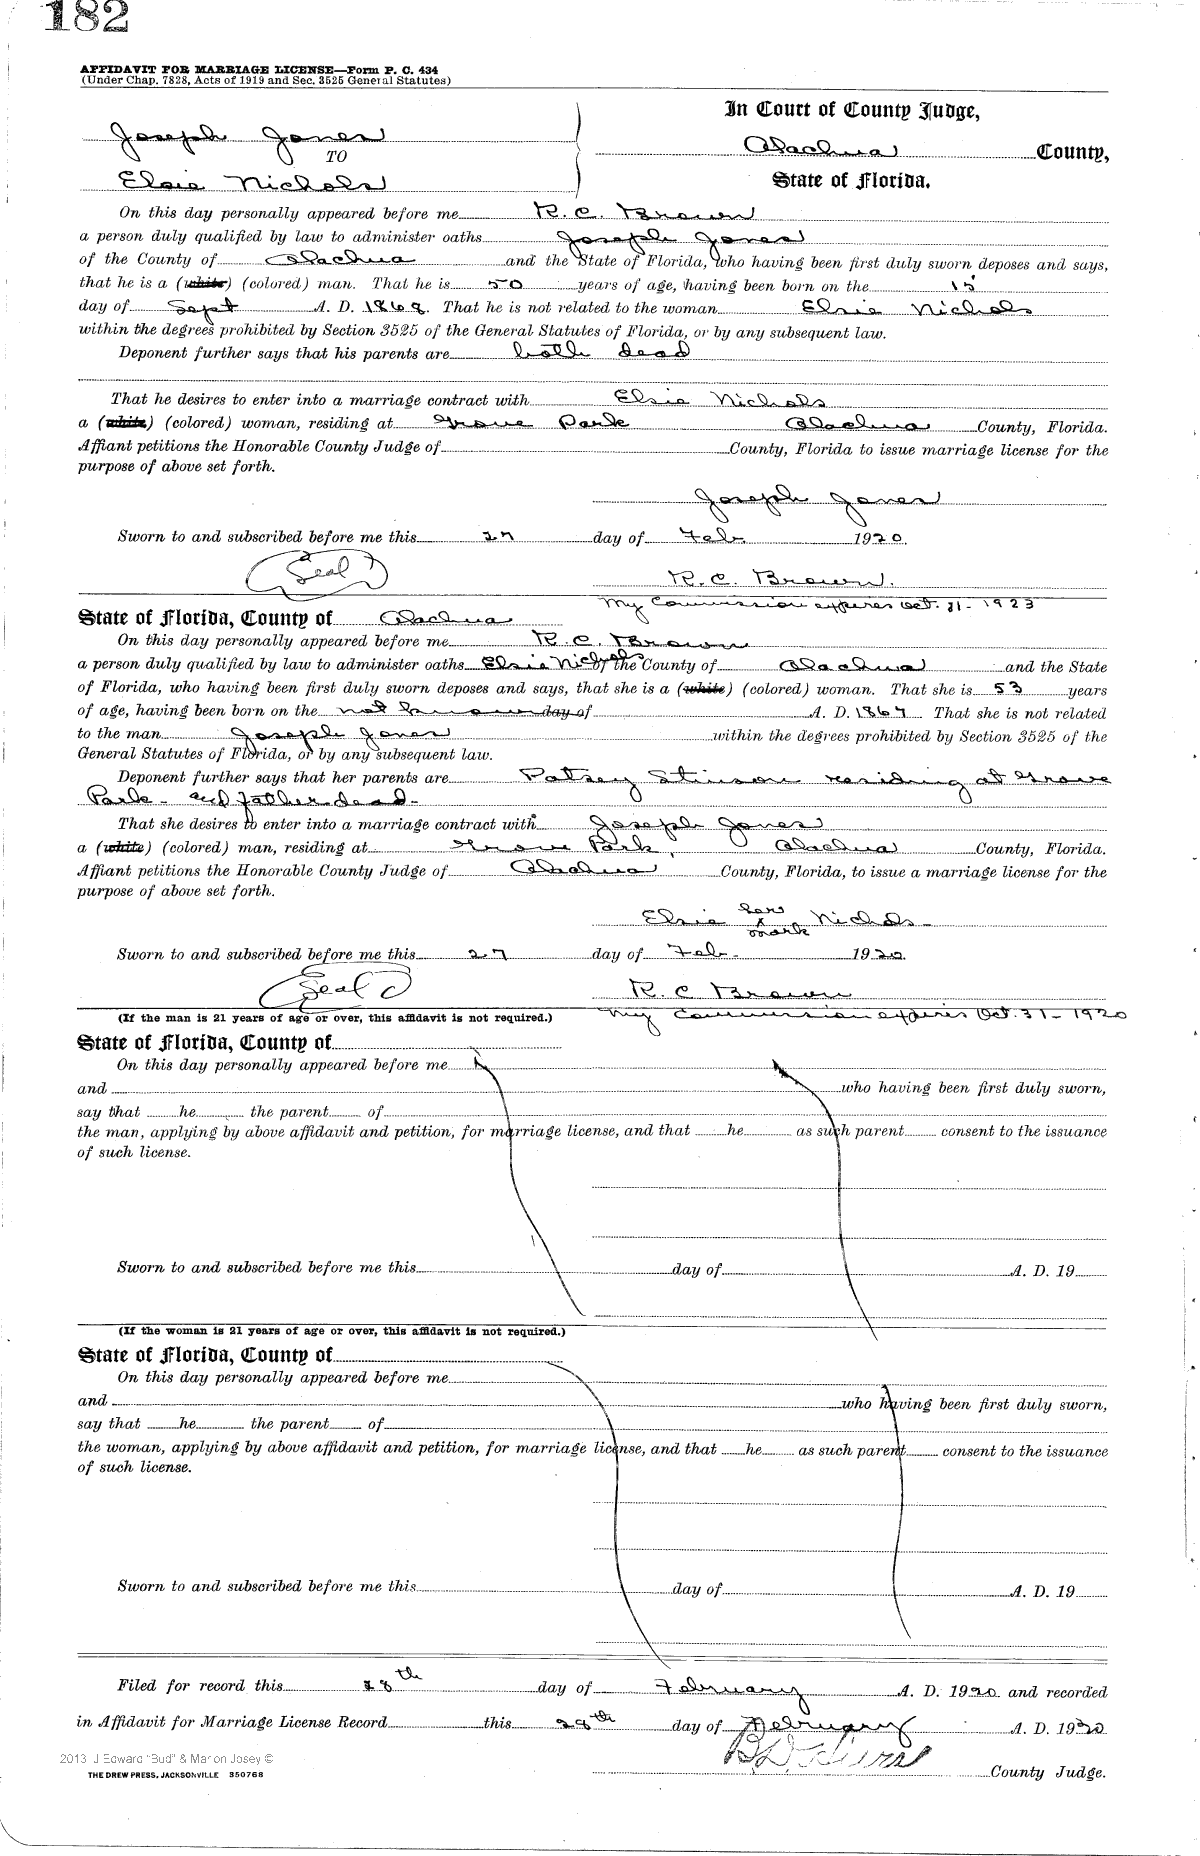 182
AFFIDAVIT FOR MARRIAGE LICENSE—Form P. C. 434
(Under Chap. 7828, Acts of 1919 and Sec. 3525 General Statutes)
In Court of County Judge,
Joseph Jones
Alachua County,
TO
Elsie Nichols
State of Florida.
On this day personally appeared before me R. C. Brown
a person duly qualified by law to administer oaths Joseph Jones
of the County of Alachua and the State of Florida, who having been first duly sworn deposes and says,
that he is a (white) (colored) man. That he is 50 years of age, having been born on the 15
day of Sept A. D. 1868. That he is not related to the woman Elsie Nichols
within the degrees prohibited by Section 3525 of the General Statutes of Florida, or by any subsequent law.
Deponent further says that his parents are both dead
That he desires to enter into a marriage contract with Elsie Nichols
a (white) (colored) woman, residing at Grove Park Alachua County, Florida.
Affiant petitions the Honorable County Judge of County, Florida to issue marriage license for the
purpose of above set forth.
Joseph Jones
Sworn to and subscribed before me this 27 day of Feb. 1920.
(Seal) R. C. Brown.
My Commission expires Oct. 31 - 1923
State of Florida, County of Alachua
On this day personally appeared before me R. C. Brown
a person duly qualified by law to administer oaths Elsie Nichols of the County of Alachua and the State
of Florida, who having been first duly sworn deposes and says, that she is a (white) (colored) woman. That she is 53 years
of age, having been born on the not known day of A. D. 1867 That she is not related
to the man Joseph Jones within the degrees prohibited by Section 3525 of the
General Statutes of Florida, or by any subsequent law.
Deponent further says that her parents are Patsey Stinson residing at Grove
Park - and father dead -
That she desires to enter into a marriage contract with Joseph Jones
a (white) (colored) man, residing at Grove Park, Alachua County, Florida.
Affiant petitions the Honorable County Judge of Alachua County, Florida, to issue a marriage license for the
purpose of above set forth.
Elsie her x mark Nichols
Sworn to and subscribed before me this 27 day of Feb. 1920
(Seal) R. C Brown
(If the man is 21 years of age or over, this affidavit is not required.) My Commission expires Oct. 31 - 1920
State of Florida, County of
On this day personally appeared before me
and who having been first duly sworn,
say that he the parent of
the man, applying by above affidavit and petition, for marriage license, and that he as such parent consent to the issuance
of such license.
Sworn to and subscribed before me this day of A. D. 19
(If the woman is 21 years of age or over, this affidavit is not required.)
State of Florida, County of
On this day personally appeared before me
and who having been first duly sworn,
say that he the parent of
the woman, applying by above affidavit and petition, for marriage license, and that he as such parent consent to the issuance
of such license.
Sworn to and subscribed before me this day of A. D. 19
Filed for record this 28th day of February A. D. 1920 and recorded
in Affidavit for Marriage License Record this 28th day of February A. D. 1920
2013 J Edward "Bud" & Marion Josey ©
THE DREW PRESS, JACKSONVILLE 350768
County Judge.